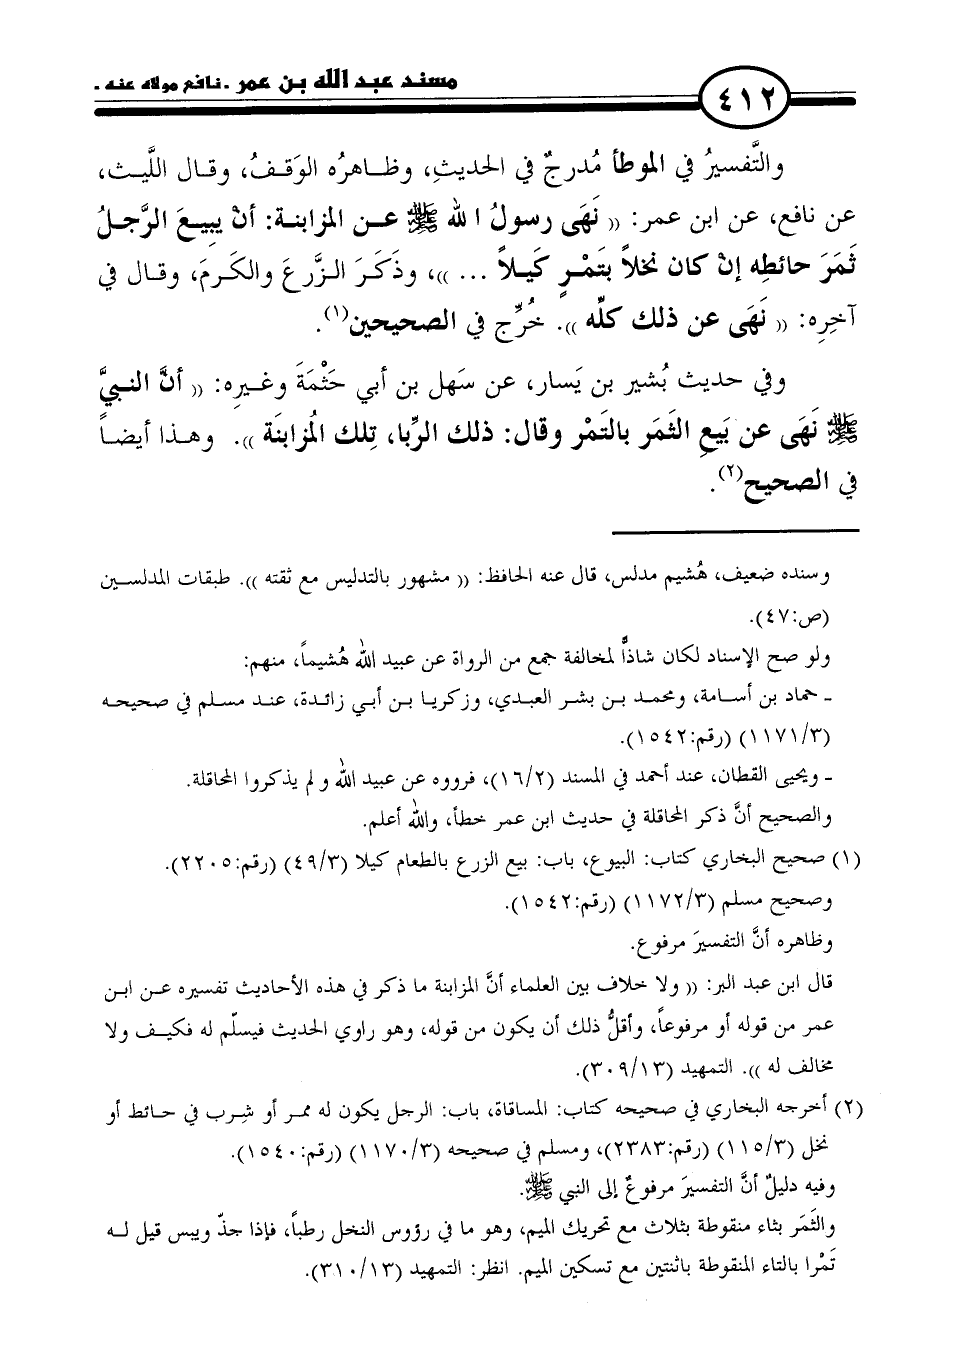 ٤١٢
مسند عبد الله بن عمر .نافع مولاه عنه .
والتَّفسيرُ في الموطأ مُدرجٌ في الحديثِ، وظـاهرُه الوَقـفُ، وقـال اللَّيـث،
عن نافع، عن ابن عمر: (( نَهَى رسولُ الله ﷺ عـن المزابنـة: أنْ يبيـعَ الرَّجلُ
ثَمَرَ حائطِه إنْ كان نخلاً بتَمْرٍ كَيلاً ... ))، وذَكَـرَ الـزَّرعَ والكَـرمَ، وقـال في
آخرِه: (( نَهَى عن ذلك كلّه )). خُرِّج في الصحيحين(١).
وفي حديث بُشير بن يَسار، عن سَهل بن أبي حَثْمَةَ وغـيرِه: (( أنَّ النبيَّ
ﷺ نَهَى عن بَيعِ الثَمَر بالتَمْر وقال: ذلك الرِّبا، تِلك المُزابنَة )). وهـذا أيضـاً
في الصحيح(٢).
وسنده ضعيف، هُشيم مدلس، قال عنه الحافظ: (( مشهور بالتدليس مع ثقته )). طبقات المدلسـين
(ص:٤٧).
ولو صح الإسناد لكان شاذاًّ لمخالفة جمع من الرواة عن عبيد الله هُشيماً، منهم:
ـ حماد بن أسـامة، ومحمـد بـن بشـر العبـدي، وزكريـا بـن أبـي زائـدة، عنـد مسـلم في صحيحـه
(١١٧١/٣) (رقم:١٥٤٢).
ـ ويحيى القطان، عند أحمد في المسند (١٦/٢)، فرووه عن عبيد الله و لم يذكروا المحاقلة.
والصحيح أنَّ ذكر المحاقلة في حديث ابن عمر خطأ، والله أعلم.
(١) صحيح البخاري كتاب: البيوع، باب: بيع الزرع بالطعام كيلا (٤٩/٣) (رقم:٢٢٠٥).
وصحيح مسلم (١١٧٢/٣) (رقم:١٥٤٢).
وظاهره أنَّ التفسيرَ مرفوع.
قال ابن عبد البر: (( ولا خلاف بين العلماء أنَّ المزابنة ما ذكر في هذه الأحاديث تفسيره عـن ابـن
عمر من قوله أو مرفوعاً، وأقلُّ ذلك أن يكون من قوله، وهو راوي الحديث فيسلّم له فكيـف ولا
مخالف له )). التمهيد (٣٠٩/١٣).
(٢) أخرجه البخاري في صحيحه كتاب: المساقاة، باب: الرجل يكون له ممر أو شِرب في حـائط أو
نخل (١١٥/٣) (رقم:٢٣٨٣)، ومسلم في صحيحه (١١٧٠/٣) (رقم:١٥٤٠).
وفيه دليلٌ أنَّ التفسيرَ مرفوعٌ إلى النبي ﷺ.
والثَمَر بثاء منقوطة بثلاث مع تحريك الميم، وهو ما في رؤوس النخل رطباً، فإذا جذّ ويبس قيل لـه
تَمْرا بالتاء المنقوطة باثنتين مع تسكين الميم. انظر: التمهيد (٣١٠/١٣).